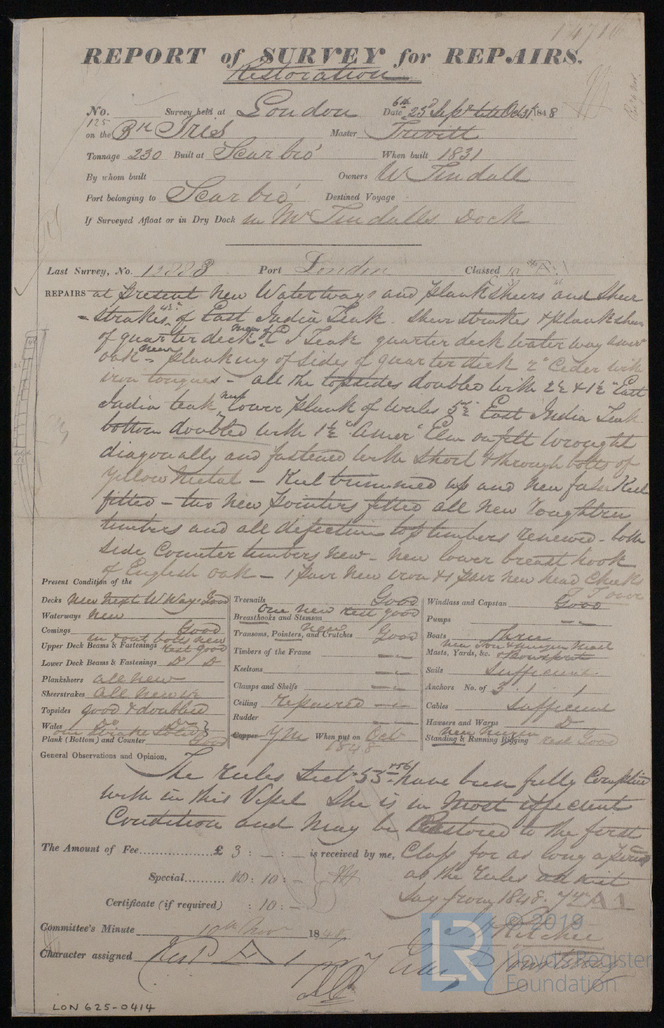 REPORT of SURVEY for REPAIRS.
Restoration
No. 125 Survey held at London Date 6th 23d Sept to 31 Oct 1848
on the Bk Iris Master Trevitt
Tonnage 230 Built at Scarbro' When built 1831
By whom built Owners W Tindall
Port belonging to Scarbro' Destined Voyage
If Surveyed Afloat or in Dry Dock in Mr Tindalls Dock
Last Survey, No. 12228 Port London Classed 10 A1
REPAIRS at Present New Waterways and planksheers and Sheer
Strakes of East India Teak. Sheer strakes & planksheer
of quarter deck of E I Teak quarter deck water way
oak - planking of sides of quarter deck 2" Ceder with
iron tongues - all the topsides doubled with 2½ & 1½" East
India teak new lower plank of Wales 5½ East India Teak
bottom doubled with 1½" Amer Elm on felt wrought
diagonally and fastened with Short & through bolts of
Yellow Metal - Keel trimmed up and new false Keel
fitted - two new Pointers fitted all new
timbers and all defective top timbers renewed - both
side Counter timbers new - new lower breast hook
of English oak - 1 pair new iron & 1 pair new head Cheeks
Present Condition of the
Decks New Next W Ways Good
Waterways New
Comings Good
Upper Deck Beams & Fastenings rest good
Lower Deck Beams & Fastenings Do Do
Planksheers all new
Sheerstrakes all new
Topsides good & doubled
Wales Do Do
Plank (Bottom) and Counter Good
Treenails Good
one new rest good
Breasthooks and Stemson
Transoms, Pointers, and Crutches new Good
Timbers of the Frame
Keelsons
Clamps and Shelfs
Ceiling repaired
Rudder
Copper YM When put on Oct 1848
Windlass and Capstan Good
Pumps
Boats Three
Masts, Yards, &c. & Bowsprit
Sails Sufficient
Anchors No. of 3 . 1 . 1
Cables Sufficient
Hawsers and Warps D
Standing & Running Rigging rest Good
General Observations and Opinion,
The rules Sect 53 have been fully Complied
with in this Vessel She is in most efficient
Condition and May be Restored to the first
The Amount of Fee £ 3 : - : - is received by me, Class for as long a period
Special 10 : 10 : - as the rules admit
Certificate (if required) : 10 : - Say from 1848. 7 yrs A1
Committee's Minute 10th Nov 1848
Character assigned
© 2019
Lloyd's Register
Foundation
LR
LON 625-0414